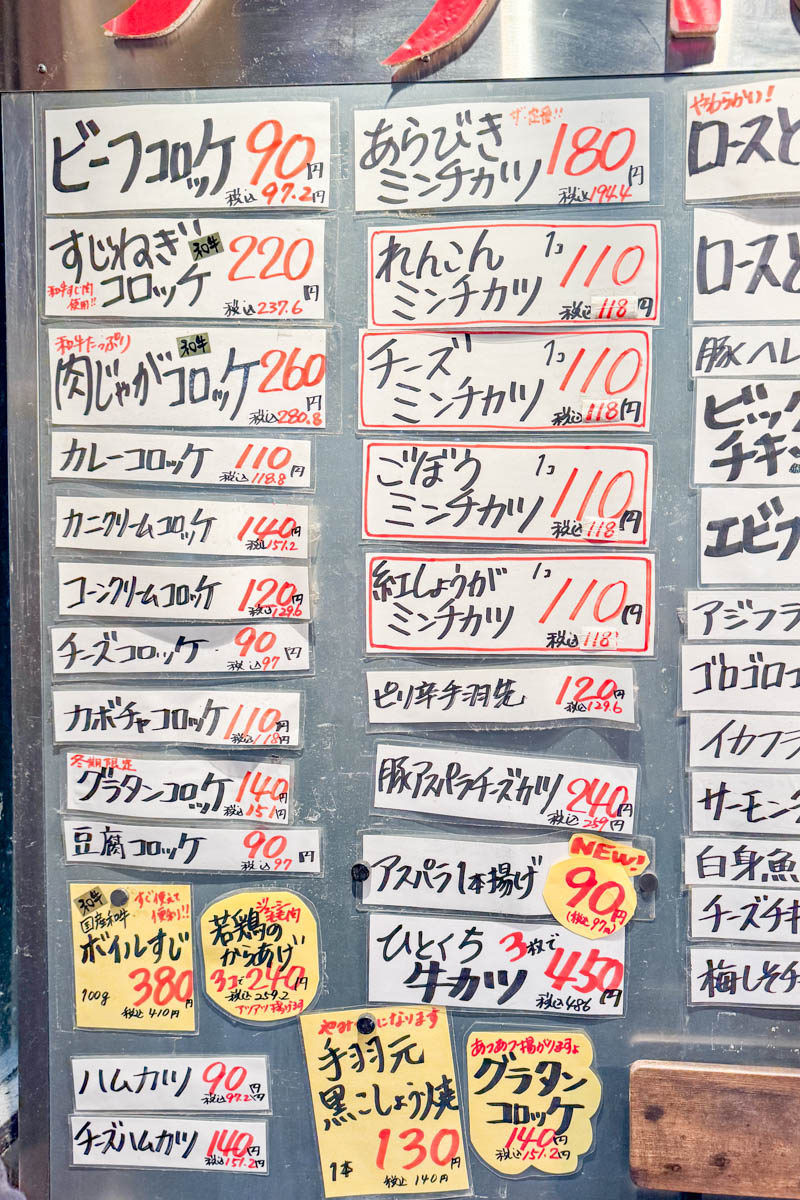 ビーフコロッケ 90円
税込97.2円
すじねぎ 和牛
コロッケ 220円
和牛すじ肉
使用!!
税込237.6
和牛たっぷり 和牛
肉じゃがコロッケ 260円
税込280.8
カレーコロッケ 110円
税込118.8
カニクリームコロッケ 140円
税込151.2
コーンクリームコロッケ 120円
税込129.6
チーズコロッケ 90円
税込97
カボチャコロッケ 110円
税込118円
冬期限定
グラタンコロッケ 140円
税込151円
豆腐コロッケ 90円
税込97
和牛
すぐ使えて
便利!!
国産和牛
ボイルすじ
100g 380円
税込410円
ジューシーもも肉
若鶏の
からあげ
3コで240円
税込259.2
アツアツ揚げます
ハムカツ 90円
税込97.2円
チーズハムカツ 140円
税込151.2円
ザ・定番!!
あらびき
ミンチカツ 180円
税込194.4
れんこん
ミンチカツ
1コ 110
税込118円
チーズ
ミンチカツ
1コ 110
税込118円
ごぼう
ミンチカツ
1コ 110円
税込118
紅しょうが
ミンチカツ
1コ 110円
税込118
ピリ辛手羽先 120円
税込129.6
豚アスパラチーズカツ 240円
税込259円
アスパラ1本揚げ
NEW!
90円
(税込97円)
ひとくち
牛カツ
3枚で
450円
税込486
になります
手羽元
黒こしょう焼
1本 130円
税込140円
あつあつ揚がりますよ
グラタン
コロッケ
140円
税込151.2円
やわらかい!
ロースと
ロースと
豚ヘレ
ビック
チキ
エビフ
アジフラ
ゴロゴロコ
イカフラ
サーモン
白身魚
チーズチキ
梅しそチ